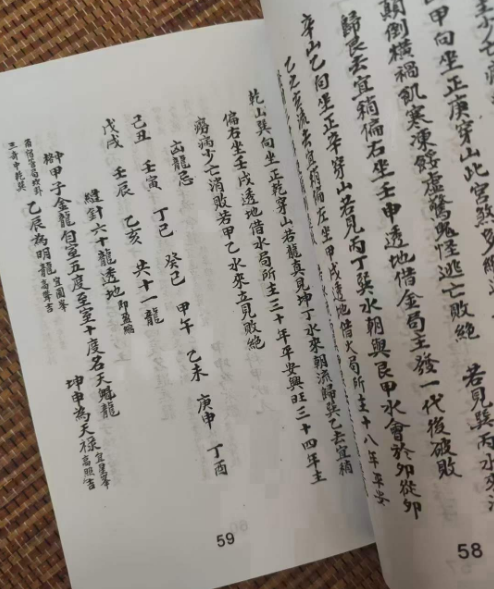 坐少亡
甲向坐正庚穿山此宮煞
顛倒橫禍飢寒凍餒虛驚鬼怪逃亡敗絕　若見巽丙水來
歸艮去宜稍偏右坐壬申透地借金局主發一代後破敗
辛山乙向坐正辛穿山若見丙丁巽水朝與艮甲水會於卯從卯
乙丑亥流去宜稍偏左坐甲戌透地借火局所主十八年平安
乾山巽向坐正乾穿山若龍真見坤丁水來朝流歸巽乙去宜稍
偏右坐壬戌透地借水局所主三十年平安興旺三十四年主
癆病少亡消敗若甲乙水來立見敗絕
凶龍忌
己丑　壬寅　丁巳　癸巳　甲午　乙未　庚申　丁酉
戊戌　壬辰　乙亥　共十一龍
縫針六十龍透地即盈縮
甲子金龍自室五度至室十度名天魁龍
乙辰為明龍宜圓峯高聳吉　坤申為天祿宜星峯高照吉
59
58